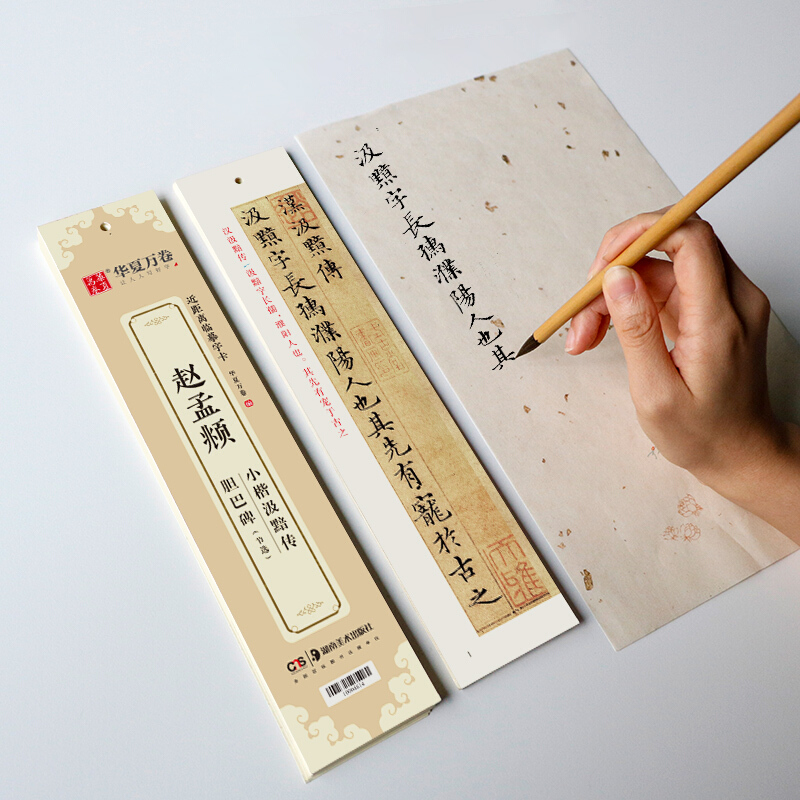 华夏万卷
让人人写好字
近距离临摹字卡
华夏万卷
赵孟頫
小楷汲黯传
胆巴碑（节选）
湖南美术出版社
汉汲黯传：汲黯字长孺，濮阳人也。其先有宠于古之
漢汲黯傳
汲黯字長孺濮陽人也其先有寵於古之
1
汲黯字長孺濮陽人也其